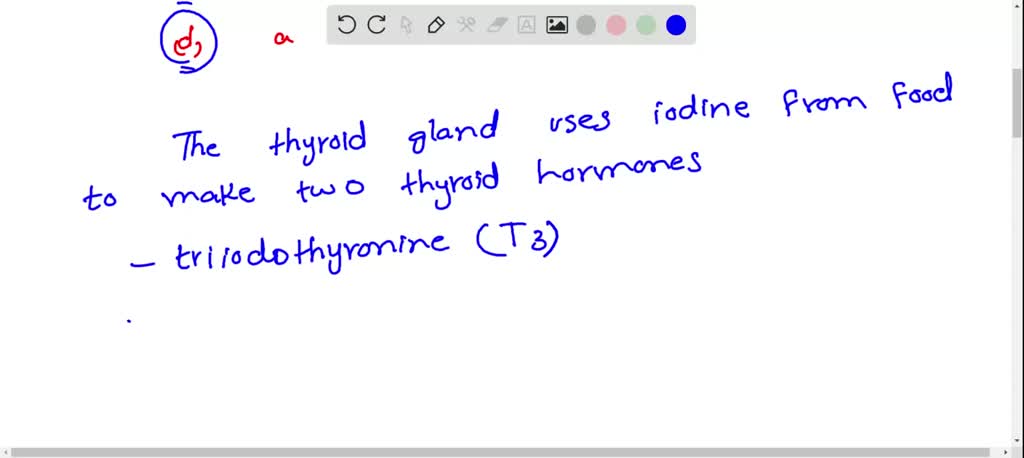 d, a
The thyroid gland uses iodine from food
to make two thyroid hormones
- triiodothyronine (T3)